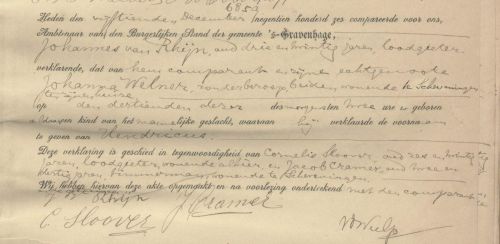 6853
Heden den vijftienden December negentien honderd zes compareerde voor ons,
Ambtenaar van den Burgerlijken Stand der gemeente 's-Gravenhage,
Johannes van Rhijn, oud drie en twintig jaren, loodgieter
verklarende, dat van hem comparant en zijne echtgenoote
Johanna Welner, zonder beroep, beiden, wonende te Scheveningen
te zijnen huize
op den dertienden dezer des morgens ten twee ure is geboren
kind van het mannelijke geslacht, waaraan hij verklaarde de voornaam
te geven van Hendricus
Deze verklaring is geschied in tegenwoordigheid van Cornelis Sloover, oud zes en twintig
jaren, loodgieter, wonende alhier en Jacob Cramer, oud twee en
veertig jaren, timmerman, wonende te Scheveningen
Wij hebben hiervan deze akte opgemaakt en na voorlezing onderteekend met den comparant
Rhijn J Cramer
C. Sloover